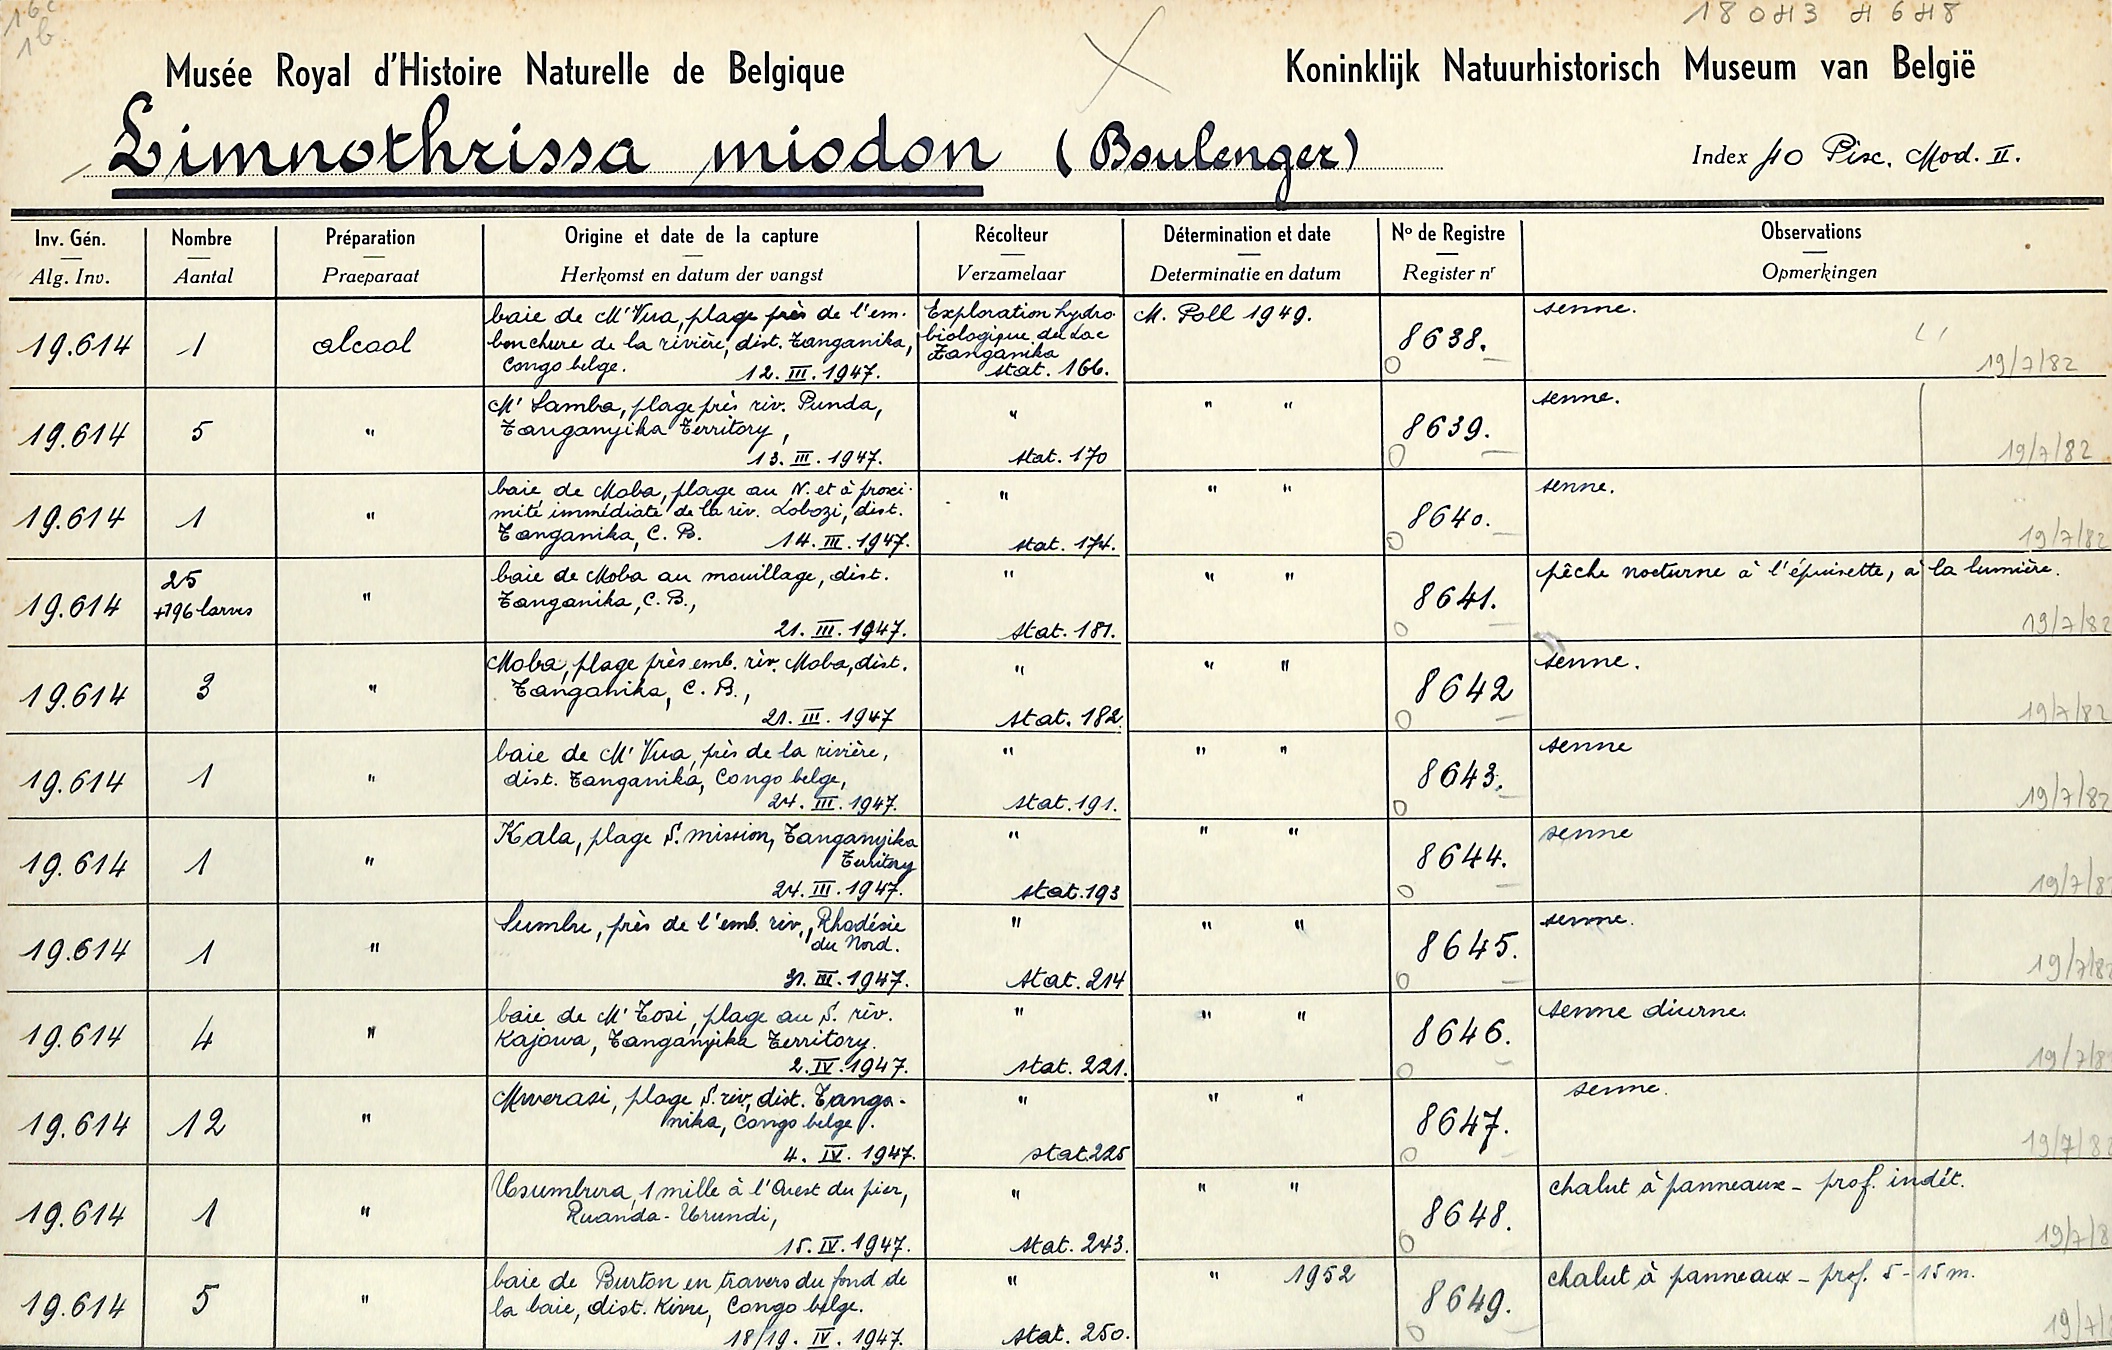 16c
1b
18043 4648
Musée Royal d'Histoire Naturelle de Belgique
Koninklijk Natuurhistorisch Museum van België
Limnothrissa miodon (Boulenger)
Index 40 Pisc. Mod. II.
Inv. Gén. Nombre Préparation Origine et date de la capture Récolteur Détermination et date No de Registre Observations
Alg. Inv. Aantal Praeparaat Herkomst en datum der vangst Verzamelaar Determinatie en datum Register nr Opmerkingen
19.614 1 alcool
baie de M'Vua, plage près de l'em-
bouchure de la rivière, dist. Tanganika,
Congo belge. 12. III. 1947.
Exploration hydro-
biologique du Lac
Tanganika
stat. 166.
M. Poll 1949.
8638.
senne.
19/7/82
19.614 5 "
M'Samba, plage près riv. Punda,
Tanganyika Territory,
13. III. 1947.
"
stat. 170
" "
8639.
senne.
19/7/82
19.614 1 "
baie de Moba, plage au N. et à proxi-
mité immédiate de la riv. Lobozi, dist.
Tanganika, C. B. 14. III. 1947.
"
stat. 174.
" "
8640.
senne.
19/7/82
19.614
25
+196 larves
"
baie de Moba au mouillage, dist.
Tanganika, C. B.,
21. III. 1947.
"
stat. 181.
" "
8641.
pêche nocturne à l'épuisette, à la lumière.
19/7/82
19.614 3 "
Moba, plage près emb. riv. Moba, dist.
Tanganika, C. B.,
21. III. 1947
"
stat. 182.
" "
8642
senne.
19/7/82
19.614 1 "
baie de M'Vua, près de la rivière,
dist. Tanganika, Congo belge,
24. III. 1947.
"
stat. 191.
" "
8643.
senne
19/7/82
19.614 1 "
Kala, plage S. mission, Tanganyika
Territory
24. III. 1947.
"
stat. 193
" "
8644.
senne
19/7/82
19.614 1 "
Sumbu, près de l'emb. riv., Rhodésie
du Nord.
31. III. 1947.
"
stat. 214
" "
8645.
senne.
19/7/82
19.614 4 "
baie de M'Tosi, plage au S. riv.
Kajowa, Tanganyika Territory.
2. IV. 1947.
"
stat. 221.
" "
8646.
senne diurne.
19/7/8
19.614 12 "
Mwerasi, plage S. riv, dist. Tanga-
nika, Congo belge.
4. IV. 1947.
"
stat 225
" "
8647.
senne.
19/7/82
19.614 1 "
Usumbura, 1 mille à l'Ouest du pier,
Ruanda-Urundi,
15. IV. 1947.
"
stat. 243.
" "
8648.
chalut à panneaux - prof. indét.
19/7/8
19.614 5 "
baie de Burton en travers du fond de
la baie, dist. Kivu, Congo belge.
18/19. IV. 1947.
"
stat. 250.
" 1952
8649.
chalut à panneaux - prof. 5-15 m.
19/7/